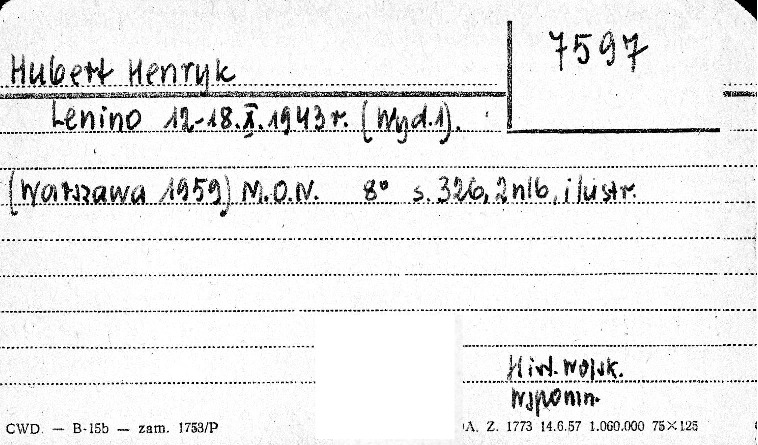 7597
Hubert Henryk
Lenino 12-18.X.1943r. (Wyd.1).
(Warszawa 1959) M.O.N. 8° s.326, 2nlb, ilustr.
Hist. wojsk.
Wspomn.
CWD. — B-15b — zam. 1753/P
A. Z. 1773 14.6.57 1.060.000 75×125